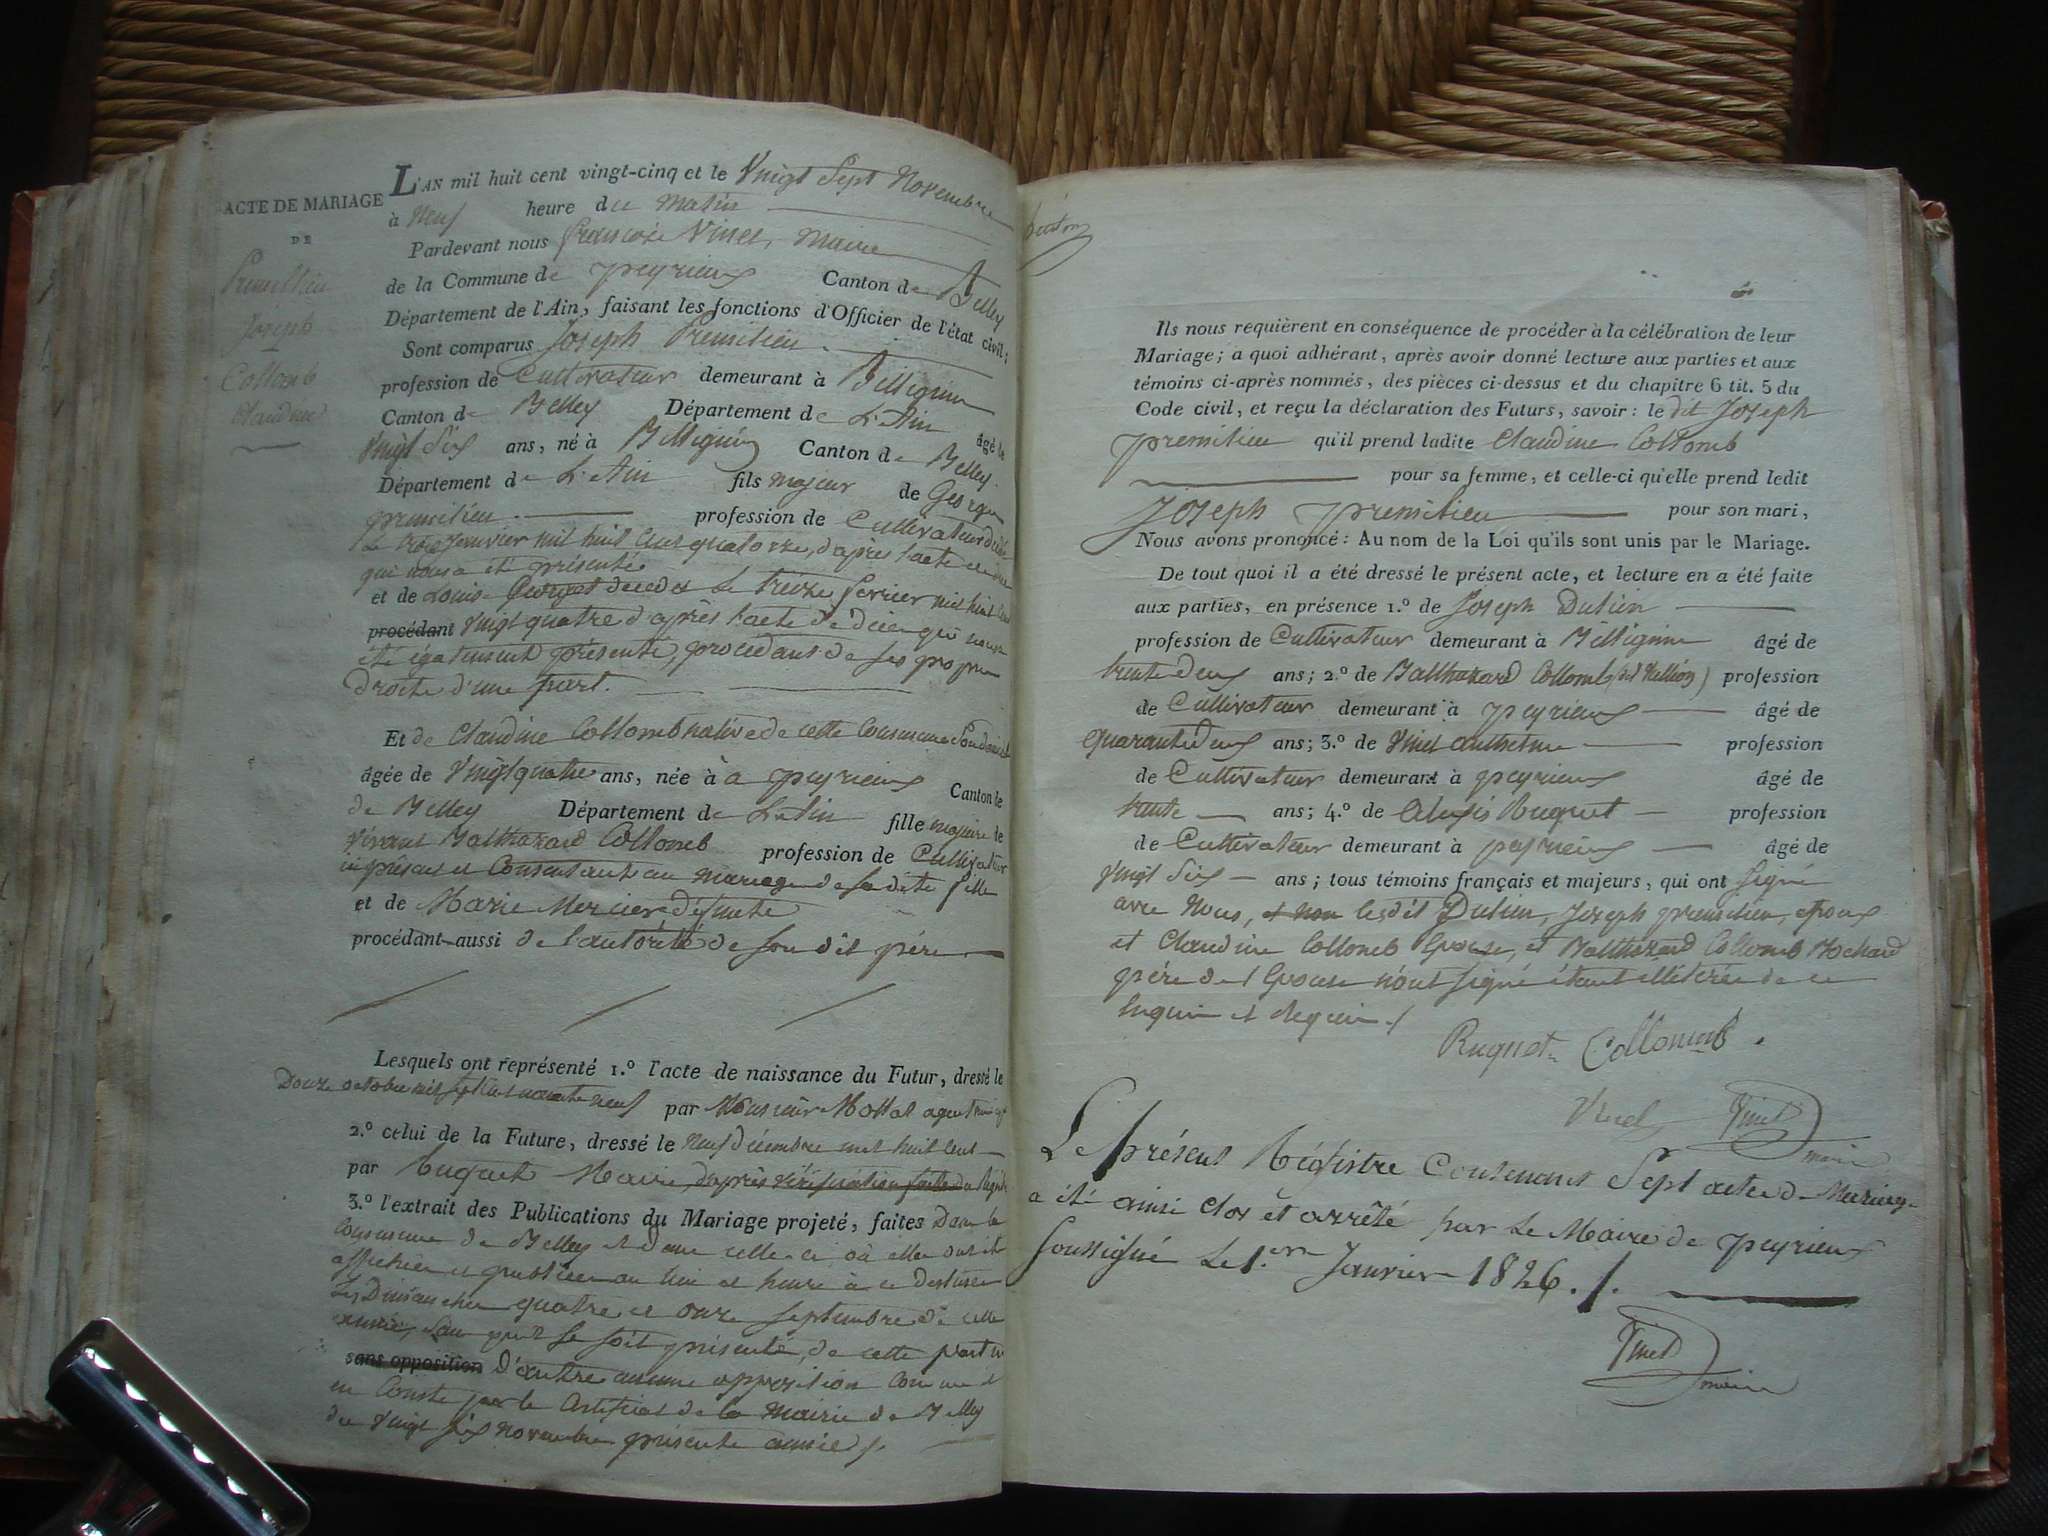 ACTE DE MARIAGE
DE
Premilieu
Joseph
Collomb
Claudine
L'AN mil huit cent vingt-cinq et le Vingt Sept Novembre
à Neuf heure du matin
Pardevant nous françois Vinet, Maire
de la Commune de peyrieux Canton de Belley
Département de l'Ain, faisant les fonctions d'Officier de l'état civil;
Sont comparus Joseph Premilieu
profession de Cultivateur demeurant à Billignin
Canton de Belley Département de L'Ain âgé de
Vingt Six ans, né à Billignin Canton de Belley
Département de L'Ain fils majeur de George
premilieu profession de Cultivateur
Le trois Janvier mil huit Cent quatorze, d'après l'acte
qui nous a été présenté
et de Louise décédée Le treize fevrier mil huit Cent
procédant Vingt quatre d'après l'acte de décès qui nous a
été également présenté, procédant de ses propres
droits d'une part.
Et de Claudine Collomb native de cette Commune
âgée de Vingt quatre ans, née à a peyrieux Canton
de Belley Département de L'Ain fille majeure de
vivant Balthazard Collomb profession de Cultivateur
ici présent et Consentant au mariage de sa dite fille
et de Marie Mercier défunte
procédant aussi de l'autorité de son dit père
Lesquels ont représenté 1.º l'acte de naissance du Futur, dressé le
Douze octobre mil sept cent nonante neuf par Monsieur Mollet agent
2.º celui de la Future, dressé le Neuf décembre mil huit Cent
par Buguet Maire, d'après vérification faite du
3.º l'extrait des Publications du Mariage projeté, faites Dans la
Commune de Belley et dans celle-ci où elles ont été
affichées et publiées au lieu et heure à ce destinés
Les Dimanches quatre et onze septembre de cette
année, sans qu'il se soit présenté, de cette part ni
sans opposition D'autre aucune opposition Comme il
en Conste par le Certificat de la Mairie de Belley
du Vingt Six Novembre présente année.
Ils nous requièrent en conséquence de procéder à la célébration de leur
Mariage; a quoi adhérant, après avoir donné lecture aux parties et aux
témoins ci-après nommés, des pièces ci-dessus et du chapitre 6 tit. 5 du
Code civil, et reçu la déclaration des Futurs, savoir: le dit Joseph
premilieu qu'il prend ladite Claudine Collomb
pour sa femme, et celle-ci qu'elle prend ledit
Joseph premilieu pour son mari,
Nous avons prononcé: Au nom de la Loi qu'ils sont unis par le Mariage.
De tout quoi il a été dressé le présent acte, et lecture en a été faite
aux parties, en présence 1.º de Joseph Dulieu
profession de Cultivateur demeurant à Billignin âgé de
trente deux ans; 2.º de Balthazard Collomb profession
de Cultivateur demeurant à peyrieux âgé de
quarante deux ans; 3.º de Vinet Anthelme profession
de Cultivateur demeurant à peyrieux âgé de
trente ans; 4.º de Alexis Buguet profession
de Cultivateur demeurant à peyrieux âgé de
Vingt Six ans; tous témoins français et majeurs, qui ont signé
avec Nous, et non lesdit Dulieu, Joseph premilieu, époux
et Claudine Collomb épouse, et Balthazard Collomb Bochard
père de l'épouse n'ont signé étant illitérés de ce
Enquis et Requis
Buguet Collomb
Vinet Vinet
maire
Le présent Régistre Contenant Sept actes de Mariage
a été ainsi clos et arrêté par Le Maire de peyrieux
soussigné Le 1.er Janvier 1826.
Vinet
maire